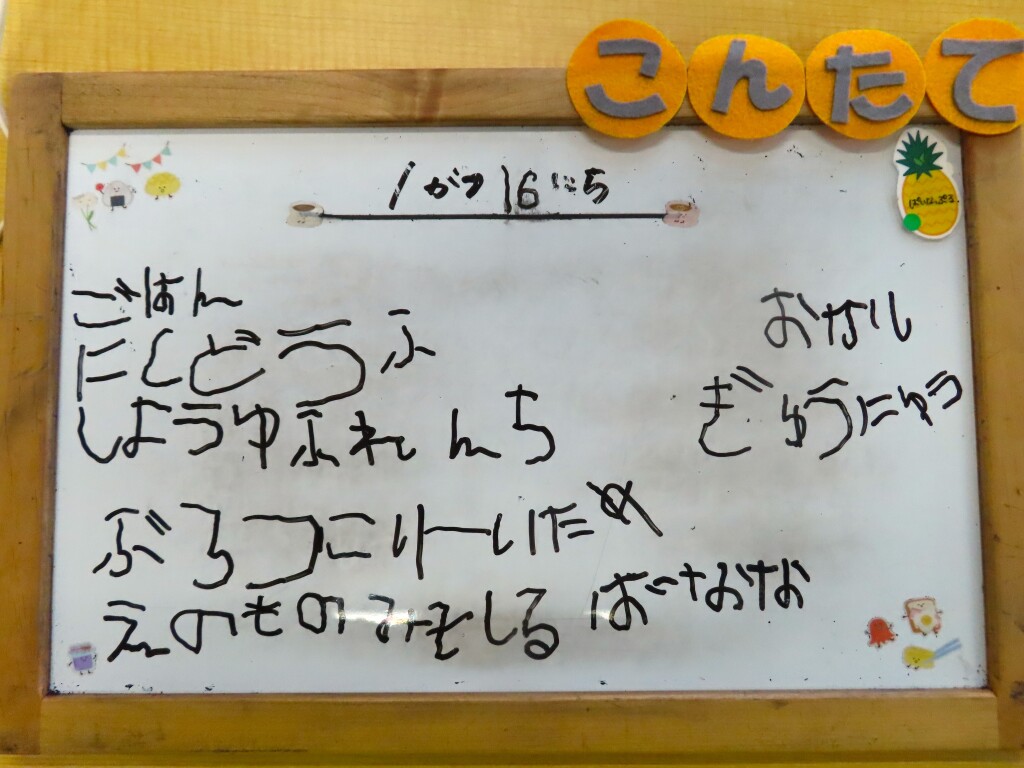 こんたて
1がつ16にち
ぱいなっぷる
ごはん
にくどうふ
しようゆふれんち
ぶろつこりーいため
えのきのみそしる ばなな
おかし
ぎゅうにゅう